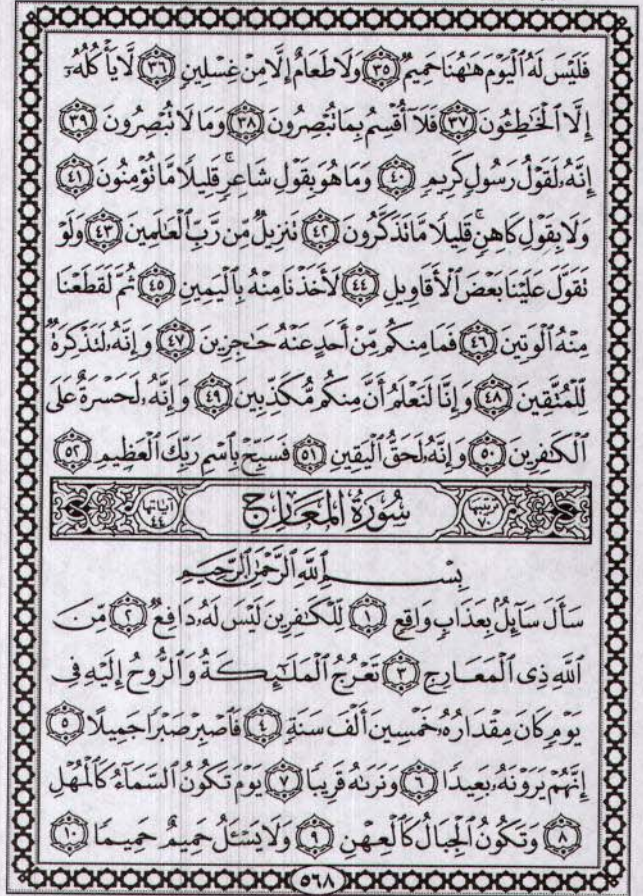 فَلَيْسَ لَهُ ٱلْيَوْمَ هَٰهُنَا حَمِيمٌ ٣٥ وَلَا طَعَامٌ إِلَّا مِنْ غِسْلِينٍ ٣٦ لَّا يَأْكُلُهُۥٓ
إِلَّا ٱلْخَٰطِـُٔونَ ٣٧ فَلَآ أُقْسِمُ بِمَا تُبْصِرُونَ ٣٨ وَمَا لَا تُبْصِرُونَ ٣٩
إِنَّهُۥ لَقَوْلُ رَسُولٍ كَرِيمٍ ٤٠ وَمَا هُوَ بِقَوْلِ شَاعِرٍۚ قَلِيلًا مَّا تُؤْمِنُونَ ٤١
وَلَا بِقَوْلِ كَاهِنٍۚ قَلِيلًا مَّا تَذَكَّرُونَ ٤٢ تَنزِيلٌ مِّن رَّبِّ ٱلْعَٰلَمِينَ ٤٣ وَلَوْ
تَقَوَّلَ عَلَيْنَا بَعْضَ ٱلْأَقَاوِيلِ ٤٤ لَأَخَذْنَا مِنْهُ بِٱلْيَمِينِ ٤٥ ثُمَّ لَقَطَعْنَا
مِنْهُ ٱلْوَتِينَ ٤٦ فَمَا مِنكُم مِّنْ أَحَدٍ عَنْهُ حَٰجِزِينَ ٤٧ وَإِنَّهُۥ لَتَذْكِرَةٌ
لِّلْمُتَّقِينَ ٤٨ وَإِنَّا لَنَعْلَمُ أَنَّ مِنكُم مُّكَذِّبِينَ ٤٩ وَإِنَّهُۥ لَحَسْرَةٌ عَلَى
ٱلْكَٰفِرِينَ ٥٠ وَإِنَّهُۥ لَحَقُّ ٱلْيَقِينِ ٥١ فَسَبِّحْ بِٱسْمِ رَبِّكَ ٱلْعَظِيمِ ٥٢
ترتيبها ٧٠ سُورَةُ المَعَارِجِ آياتها ٤٤
بِسْمِ ٱللَّهِ ٱلرَّحْمَٰنِ ٱلرَّحِيمِ
سَأَلَ سَآئِلٌۢ بِعَذَابٍ وَاقِعٍ ١ لِّلْكَٰفِرِينَ لَيْسَ لَهُۥ دَافِعٌ ٢ مِّنَ
ٱللَّهِ ذِى ٱلْمَعَارِجِ ٣ تَعْرُجُ ٱلْمَلَٰٓئِكَةُ وَٱلرُّوحُ إِلَيْهِ فِى
يَوْمٍ كَانَ مِقْدَارُهُۥ خَمْسِينَ أَلْفَ سَنَةٍ ٤ فَٱصْبِرْ صَبْرًا جَمِيلًا ٥
إِنَّهُمْ يَرَوْنَهُۥ بَعِيدًا ٦ وَنَرَىٰهُ قَرِيبًا ٧ يَوْمَ تَكُونُ ٱلسَّمَآءُ كَٱلْمُهْلِ
٨ وَتَكُونُ ٱلْجِبَالُ كَٱلْعِهْنِ ٩ وَلَا يَسْـَٔلُ حَمِيمٌ حَمِيمًا ١٠
٥٦٨